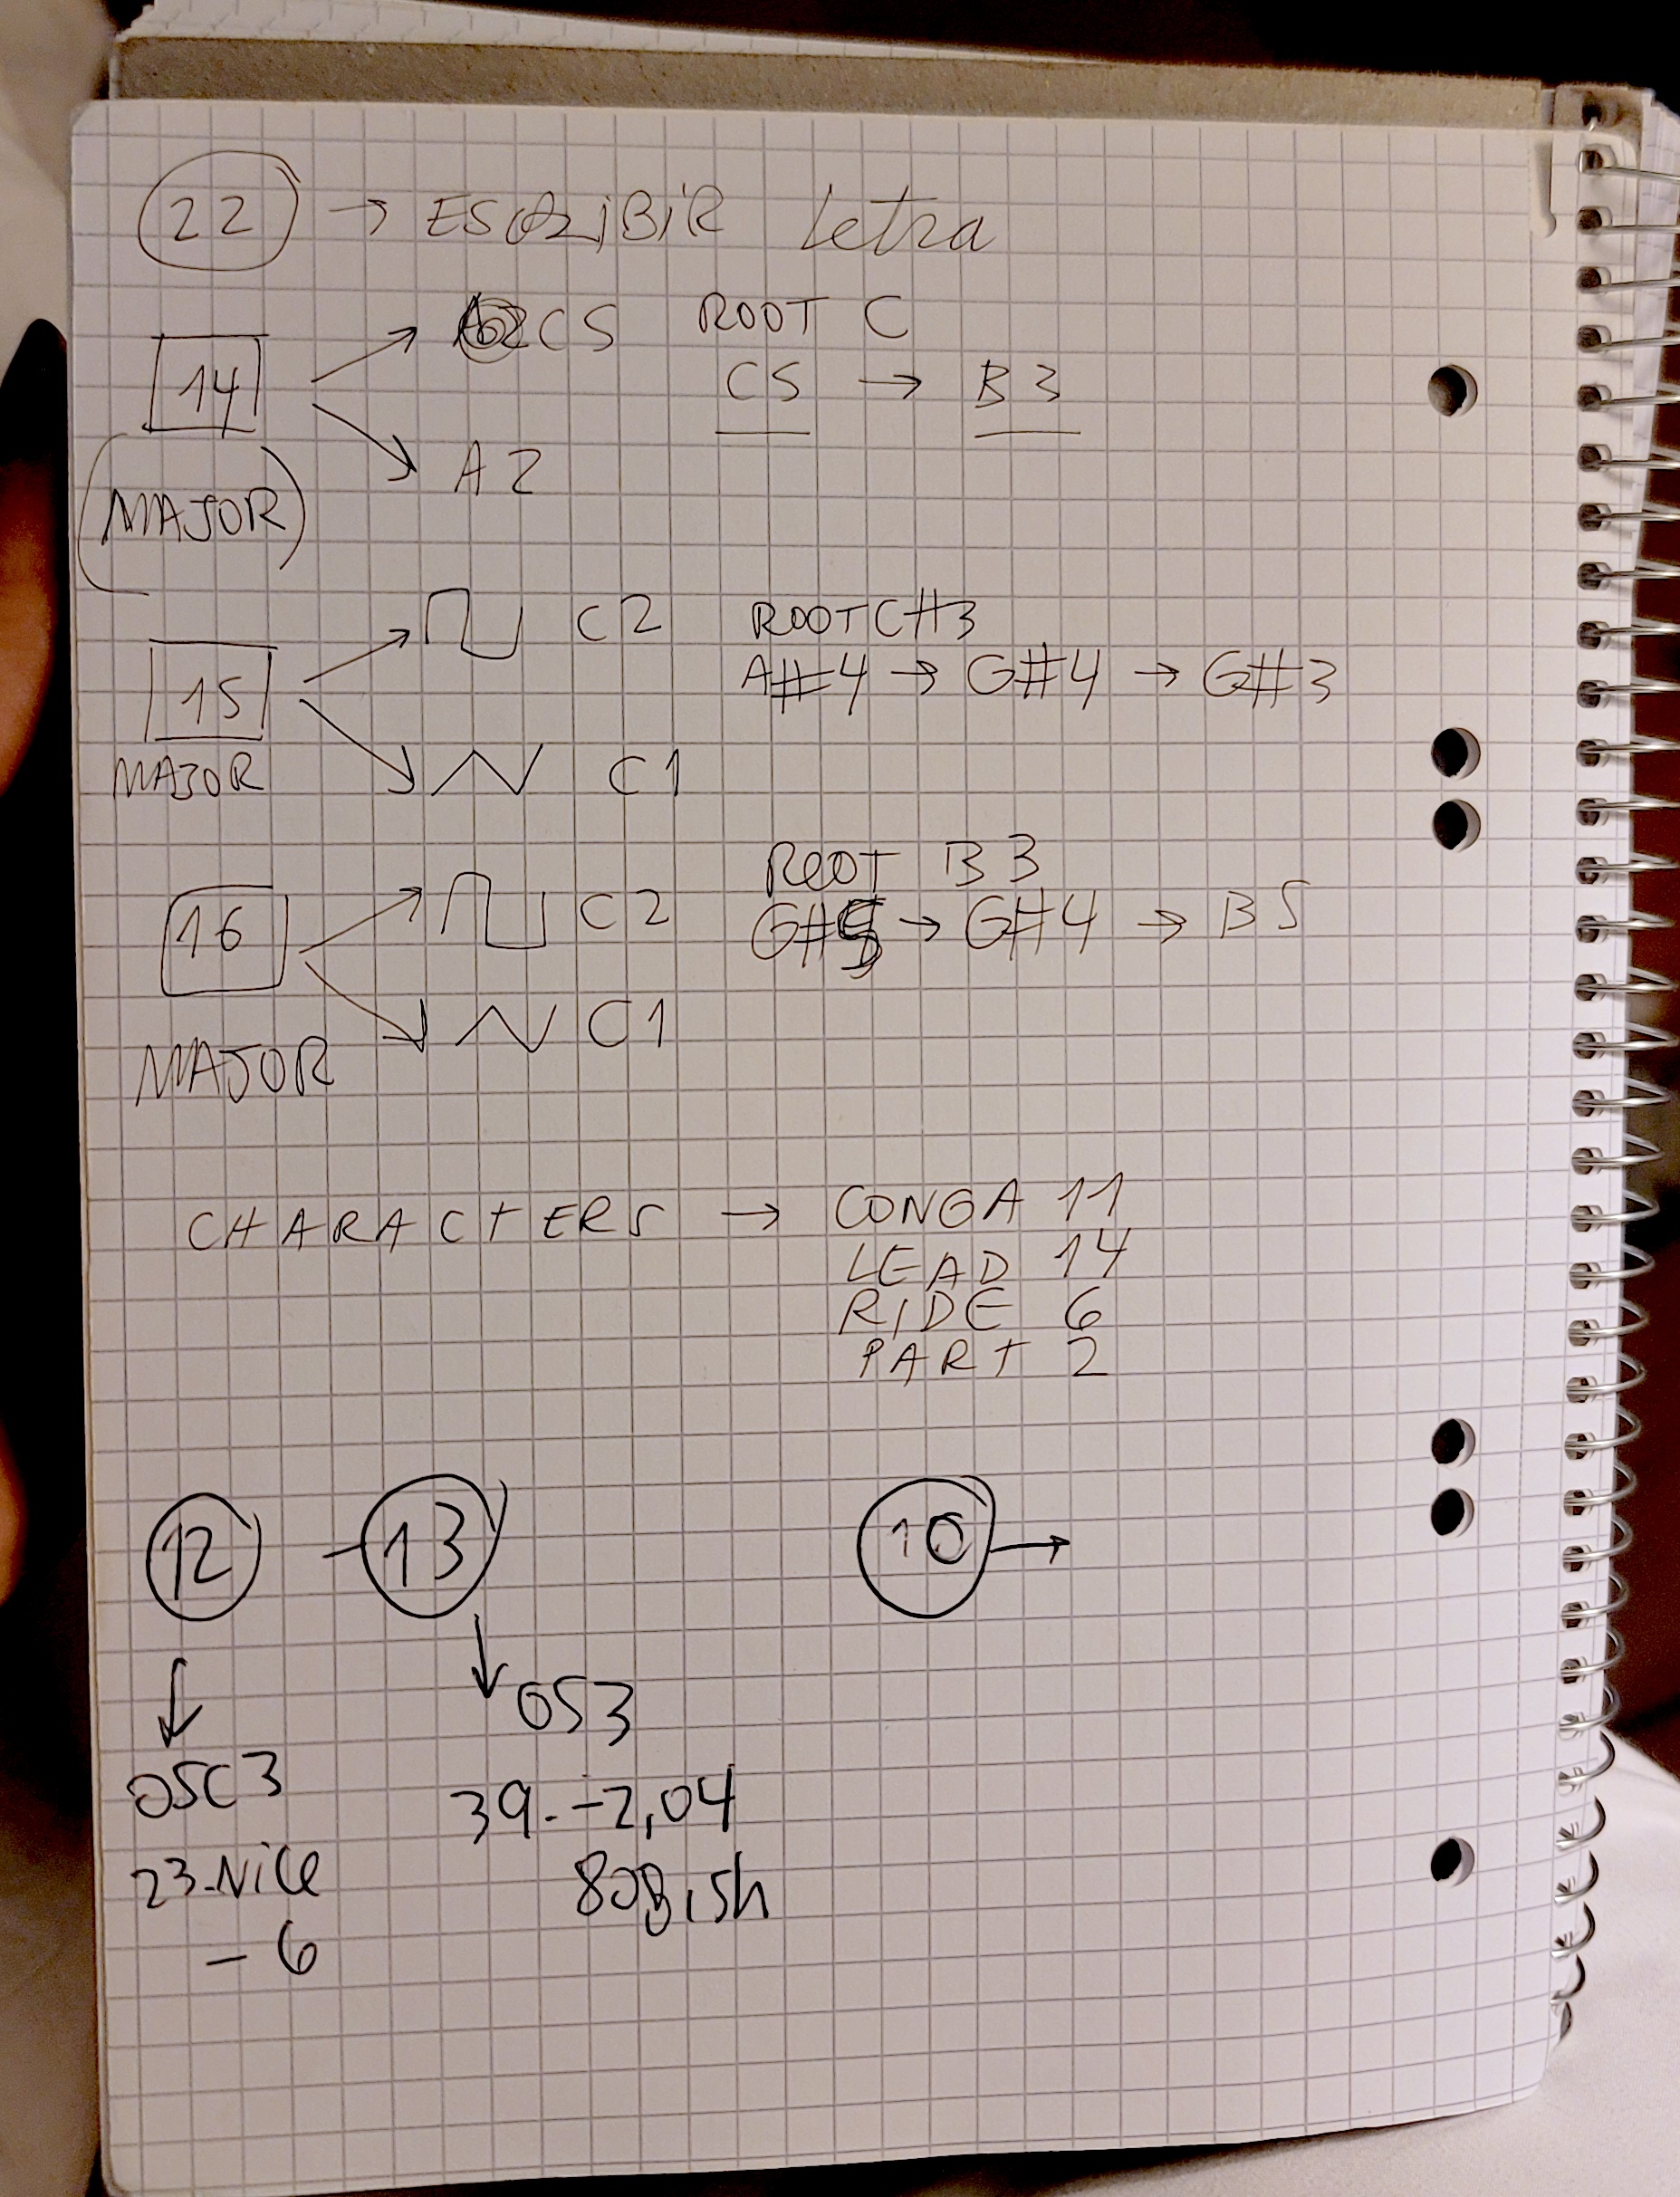 22 → ESCRIBIR letra
C5 ROOT C
14 C5 → B3
A2
(MAJOR)
C2 ROOT C#3
15 A#4 → G#4 → G#3
MAJOR C1
ROOT B3
16 C2 G#5 → G#4 → B5
C1
MAJOR
CHARACTERS → CONGA 11
LEAD 14
RIDE 6
PART 2
12 - 13 10 →
OS3
OSC3
39. -2,04
23-Nice
808ish
- 6